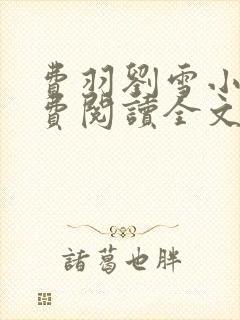 費羽劉雪小
費閱讀全文
諸葛也胖